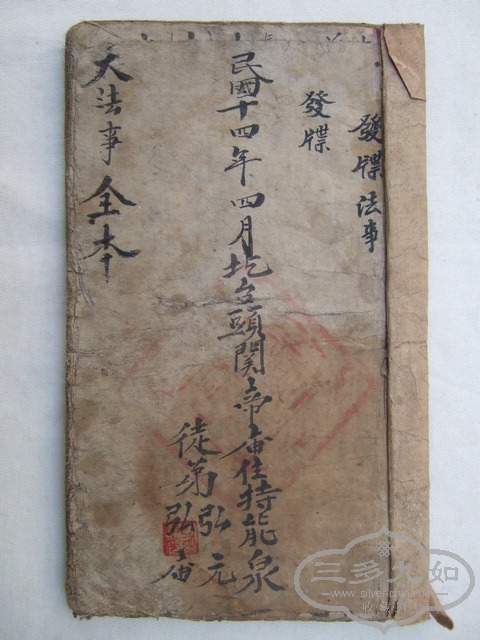 發牒法事
發牒
民國十四年四月圪台頭関帝庙住持能泉
徒弟弘元
弘庙
大法事全本
三多九如
www.silver-china.com
收藏网